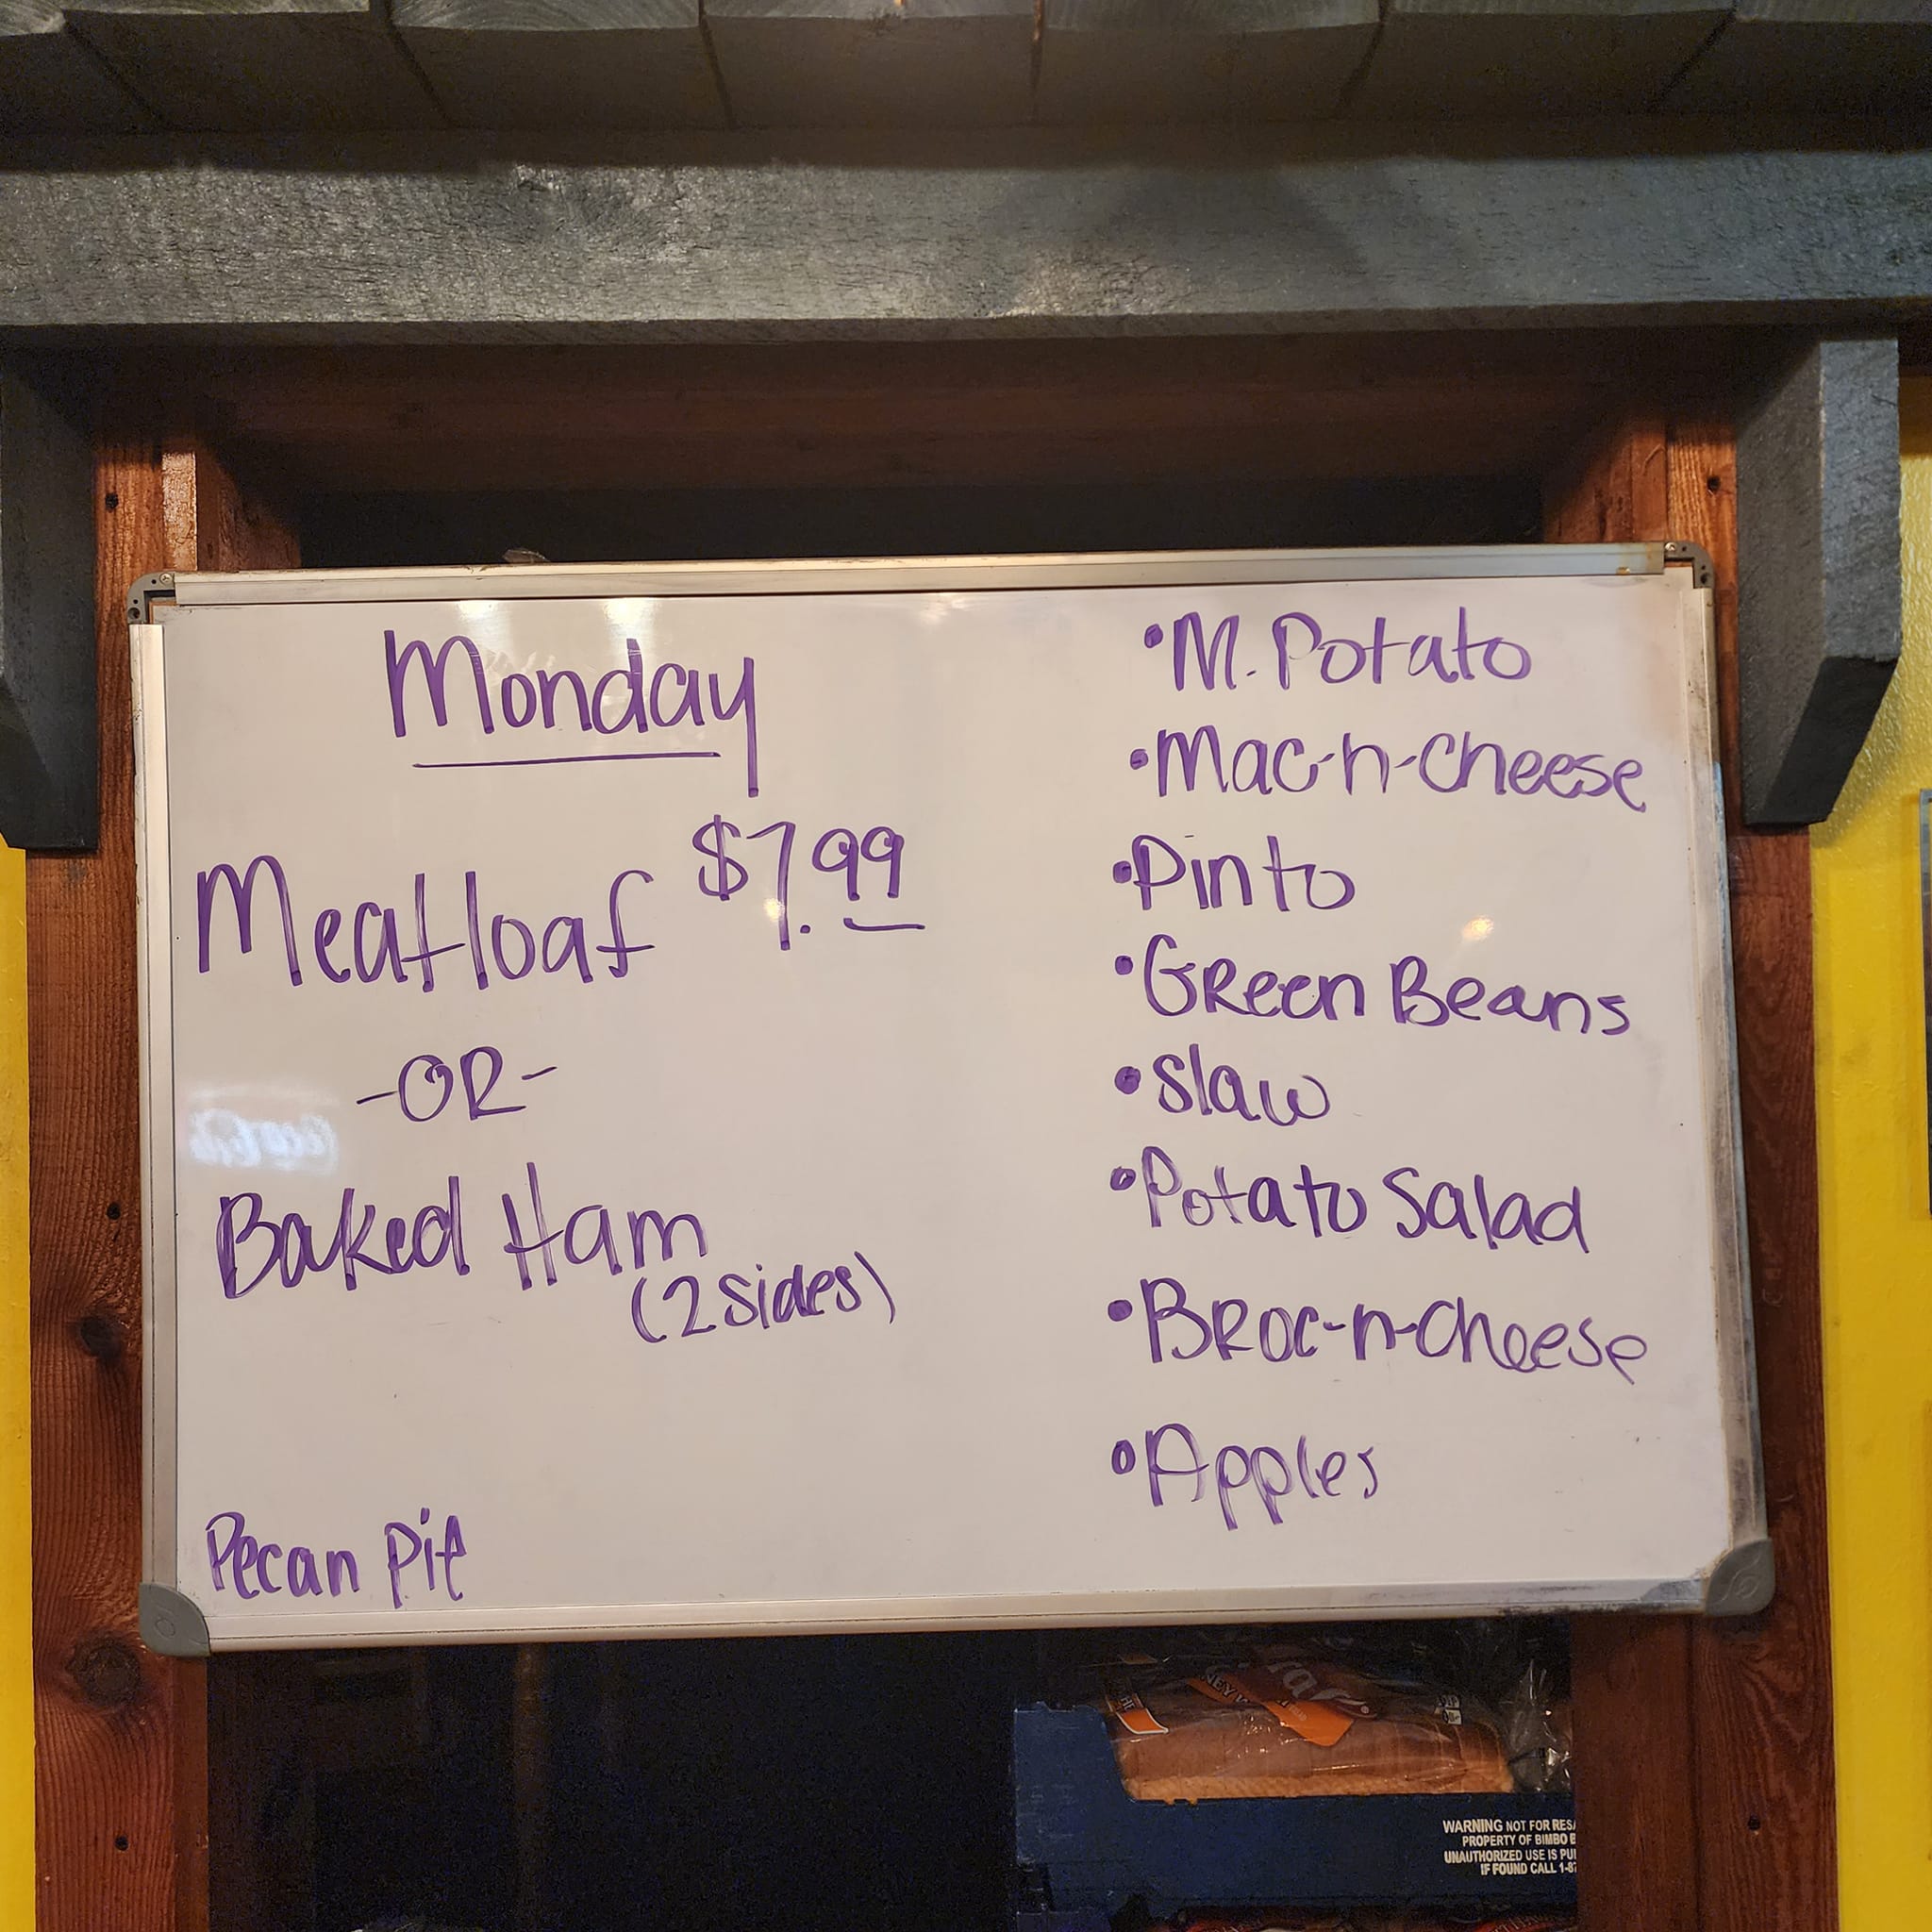 Monday
Meatloaf $7.99
-OR-
Baked Ham
(2 sides)
Pecan Pie
•M. Potato
•Mac-n-Cheese
•Pinto
•Green Beans
•Slaw
•Potato Salad
•Broc-n-Cheese
•Apples
WARNING NOT FOR
PROPERTY OF BIMBO
UNAUTHORIZED USE IS
IF FOUND CALL